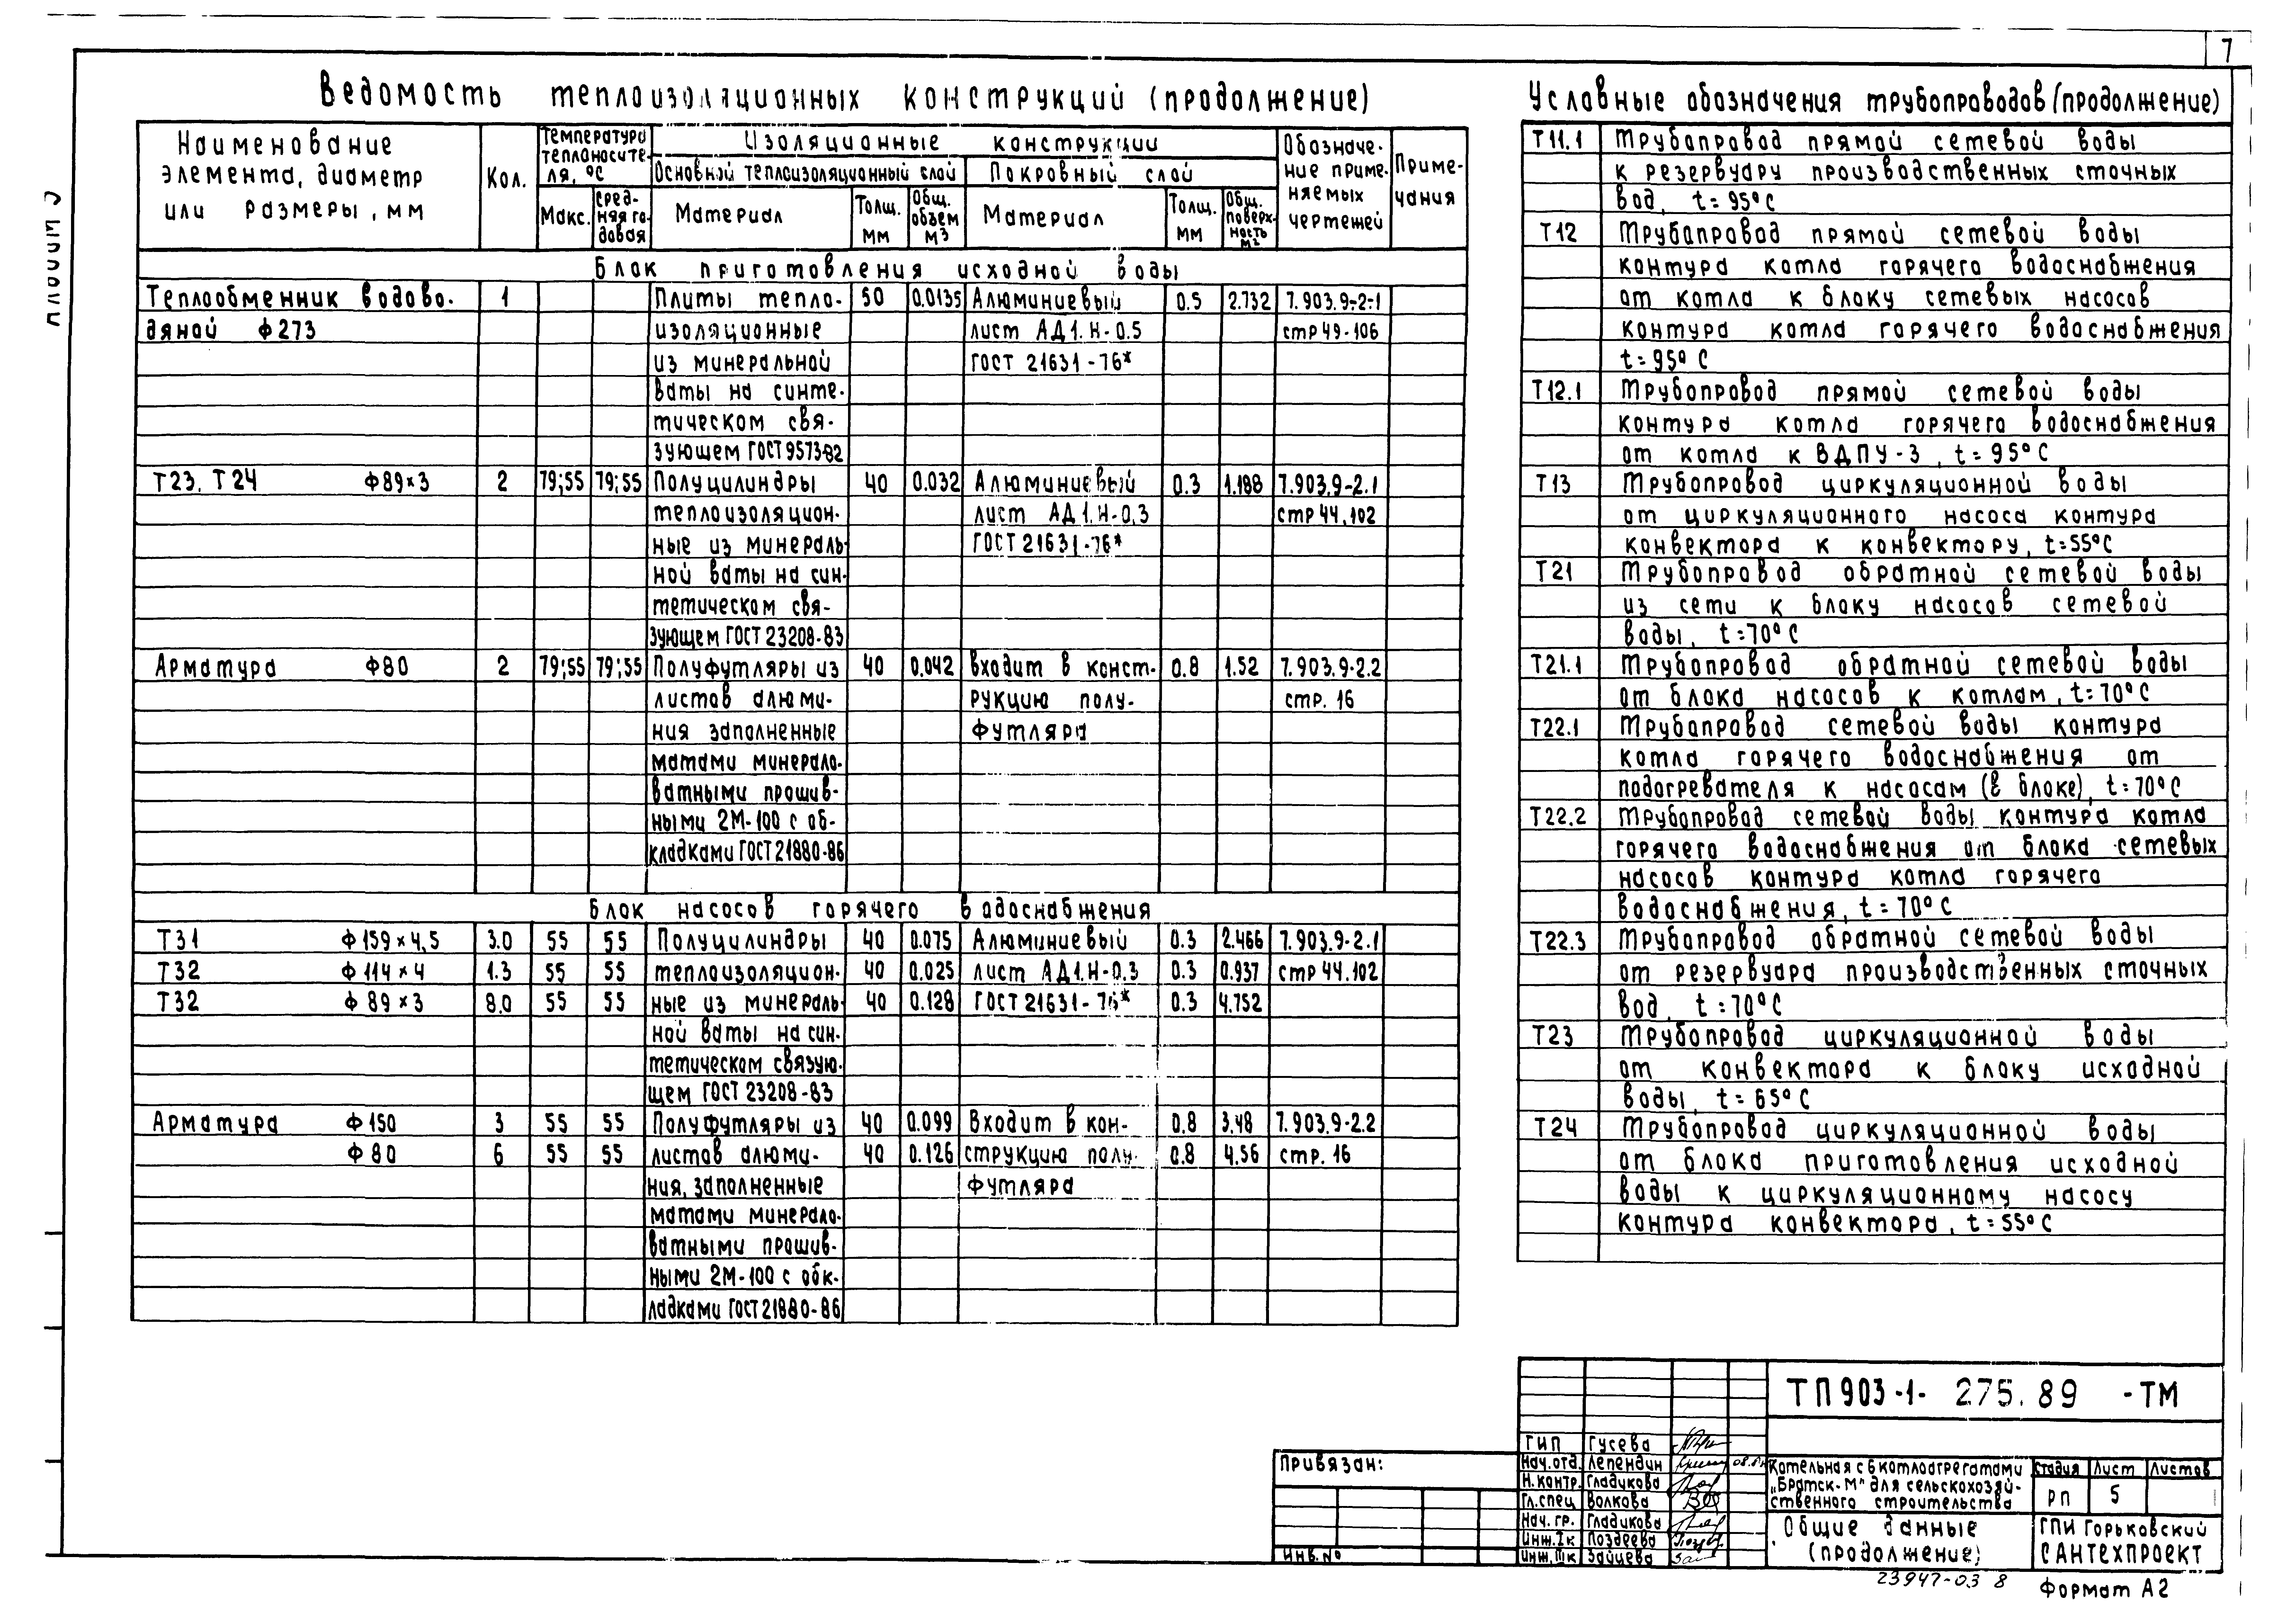 7
Ведомость теплоизоляционных конструкций (продолжение)
Наименование элемента, диаметр или размеры, мм
Кол.
Температура теплоносите-ля, °С
Макс.
Сред-няя го-довая
Изоляционные конструкции
Основной теплоизоляционный слой
Покровный слой
Материал
Толщ. мм
Общ. объем м3
Материал
Толщ. мм
Общ. поверх-ность м2
Обозначе-ние приме-няемых чертежей
Приме-чания
Блок приготовления исходной воды
Теплообменник водово- 1 Плиты тепло- 50 0.0135 Алюминиевый 0.5 2.732 7.903.9-2-1
дяной ф273 изоляционные лист АД1.Н-0.5 стр 49-106
из минеральной ГОСТ 21631-76*
ваты на синте-
тическом свя-
зующем ГОСТ 9573-82
Т23, Т24 ф89×3 2 79;55 79;55 Полуцилиндры 40 0.032 Алюминиевый 0.3 1.188 7.903.9-2.1
теплоизоляцион- лист АД1.Н-0,3 стр 44,102
ные из минераль- ГОСТ 21631-76*
ной ваты на син-
тетическом свя-
зующем ГОСТ 23208-83
Арматура ф80 2 79;55 79;55 Полуфутляры из 40 0.042 входит в конст- 0.8 1.52 7.903.9-2.2
листов алюми- рукцию полу- стр. 16
ния заполненные футляра
матами минерало-
ватными прошив-
ными 2М-100 с об-
кладками ГОСТ 21880-86
Блок насосов горячего водоснабжения
Т31 ф159×4,5 3.0 55 55 Полуцилиндры 40 0.075 Алюминиевый 0.3 2.466 7.903.9-2.1
Т32 ф114×4 1.3 55 55 теплоизоляцион- 40 0.025 лист АД1.Н-0.3 0.3 0.937 стр 44.102
Т32 ф 89×3 8.0 55 55 ные из минераль- 40 0.128 ГОСТ 21631-76* 0.3 4.752
ной ваты на син-
тетическом связую-
щем ГОСТ 23208-83
Арматура ф150 3 55 55 Полуфутляры из 40 0.099 Входит в кон- 0.8 3.48 7.903.9-2.2
ф80 6 55 55 листов алюми- 40 0.126 струкцию полу- 0.8 4.56 стр. 16
ния, заполненные футляра
матами минерало-
ватными прошив-
ными 2М-100 с обк-
ладками ГОСТ 21880-86
Условные обозначения трубопроводов (продолжение)
Т11.1 Трубопровод прямой сетевой воды
к резервуару производственных сточных
вод, t=95°С
Т12 Трубопровод прямой сетевой воды
контура котла горячего водоснабжения
от котла к блоку сетевых насосов
контура котла горячего водоснабжения
t=95°С
Т12.1 Трубопровод прямой сетевой воды
контура котла горячего водоснабжения
от котла к ВДПУ-3, t=95°С
Т13 Трубопровод циркуляционной воды
от циркуляционного насоса контура
конвектора к конвектору, t=55°С
Т21 Трубопровод обратной сетевой воды
из сети к блоку насосов сетевой
воды, t=70°С
Т21.1 Трубопровод обратной сетевой воды
от блока насосов к котлам, t=70°С
Т22.1 Трубопровод сетевой воды контура
котла горячего водоснабжения от
подогревателя к насосам (в блоке), t=70°С
Т22.2 Трубопровод сетевой воды контура котла
горячего водоснабжения от блока сетевых
насосов контура котла горячего
водоснабжения, t=70°С
Т22.3 Трубопровод обратной сетевой воды
от резервуара производственных сточных
вод, t=70°С
Т23 Трубопровод циркуляционной воды
от конвектора к блоку исходной
воды, t=65°С
Т24 Трубопровод циркуляционной воды
от блока приготовления исходной
воды к циркуляционному насосу
контура конвектора, t=55°С
ТП 903-1- 275.89 -ТМ
Привязан:
Инв.№
ГИП Гусева
Нач.отд. Лепендин
Н.контр. Гладикова
Гл.спец Волкова
Нач. гр. Гладикова
Инж.Iк Поздеева
Инж.IIIк Зайцева
Котельная с 6 котлоагрегатами
„Братск-М" для сельскохозяй-
ственного строительства
Стадия Лист Листов
РП 5
Общие данные
(продолжение)
ГПИ Горьковский
САНТЕХПРОЕКТ
23947-03 8
Формат А2